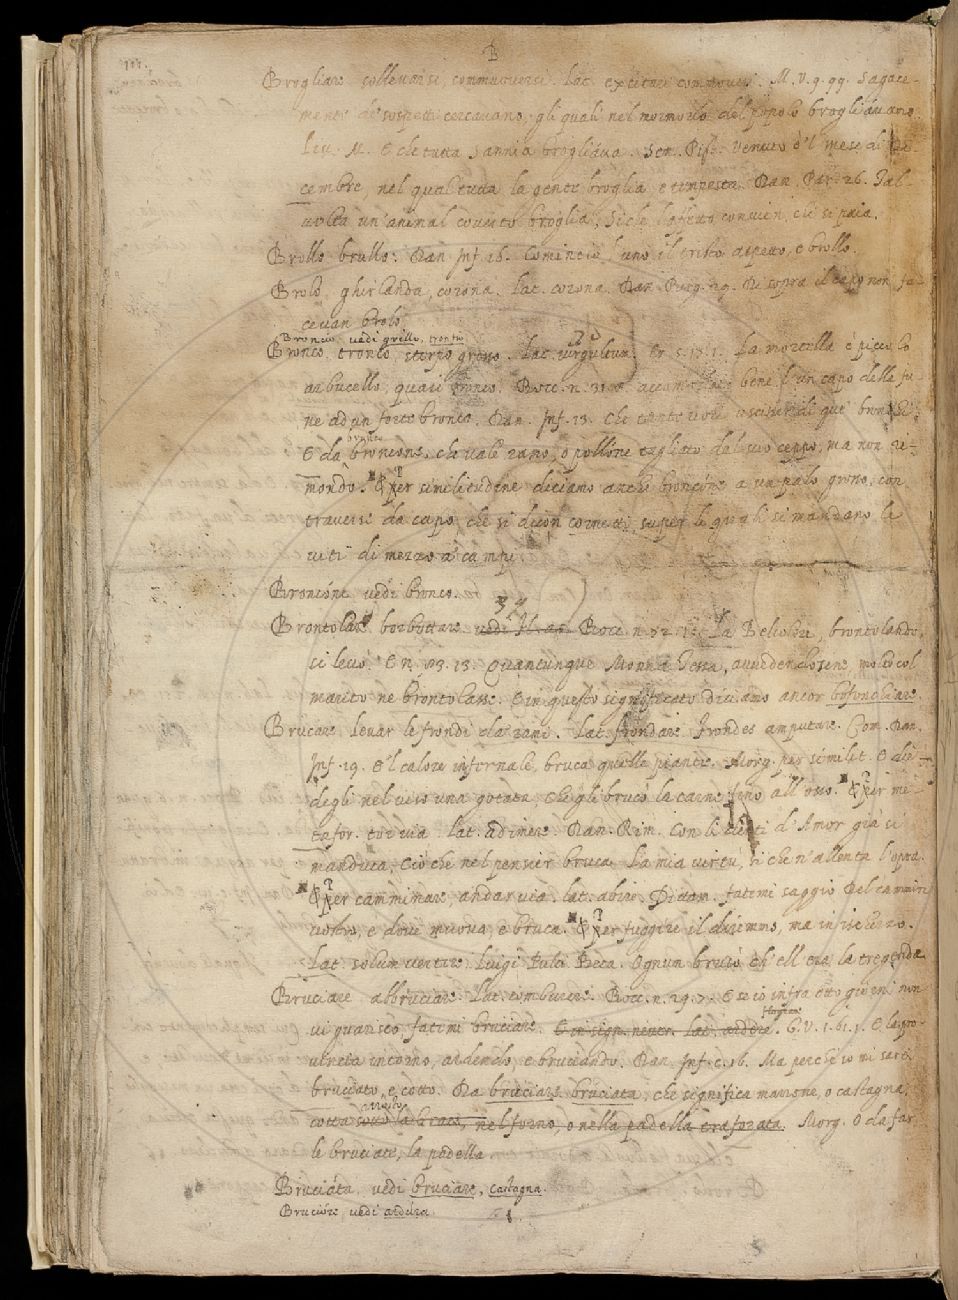 B
111.
Brogliare sollevarsi, commuoversi. Lat. excitare commovere. M. V. 9. 99. Sagace-
mente de' sospetti cercavano, gli quali nel mormorio del popolo brogliavano.
Liv. M. E che tutta Sannia brogliava. Sen. Pist. Venuto è 'l mese di De-
cembre, nel qual tutta la gente broglia, e tempesta. Dan. Par. 26. Tal-
volta un'animal coverto broglia, Sì che l'affetto convien, che si paia.
Brollo brullo. Dan. Inf. 16. Cominciò l'uno il tristo aspetto, e brollo.
Brolo, ghirlanda, corona. Lat. corona. Dan. Purg. 29. Di sopra il capo non fa-
cevan brolo.
Bronco vedi grillo, tronco
Bronco, tronco, sterpo grosso. Lat. virgultum. Cr. 5. 13. 1. La mortella è picco lo
arbucello, quasi bronco. Bocc. n. 31. accomandato bene l'un capo della fu-
ne ad un forte bronco. Dan. Inf. 13. Che tante voci uscisser di que' bronchi.
E da broncone, che vale ramo, o pollone tagliato dal suo ceppo, ma non ri-
mondo. E per similitudine diciamo anche broncone a un palo grosso, con
traverse da capo, che si dicon cornetti, super le quali si mandano le
viti di mezzo a' campi.
Broncone vedi bronco.
Brontolare borbottare vedi Bocc. n. 72. La Belcolore, brontolando,
si levò. E n. 83. 13. Quantunque Monna Tessa, avvedendosene, molto col
marito ne brontolasse. E in questo significato diciamo ancor bofonchiare.
Brucare levar le frondi da' rami. Lat. frondare frondes amputare. Com. Dan.
Inf. 19. E 'l calore infernale, bruca quelle piante. Morg. per similit. E die-
degli nel viso una gotata, Che gli brucò la carne fino all'osso. E per me-
tafor. tor via. Lat. adimere. Dan. Rim. Con li denti d'Amor già si
manduca, Ciò che nel pensier bruca La mia virtù, sì che n'allenta l'opra.
E per camminare, andar via. Lat. abire. Dittam. fatemi saggio del cammin
vostro, e dove muova e bruca. E per fuggire il diciemmo, ma in ischerzo.
Lat. solum vertere. Luigi Pulci Beca. Ognun brucò ch'ell'era la tregenda
Bruciare abbruciare. Lat. comburere. Bocc. n. 29. 7. E se io infra otto giorni non
vi guarisco, fatemi bruciare. E in sign. neutr. Lat. ardere. G. V. 1. 61. 1. E la pro-
vereta intorno, ardendo, e bruciando. Dan. Inf. c. 16. Ma perch'io mi sarei
bruciato, e cotto. Da bruciare bruciata, che significa marrone, o castagna,
cotta sotto la brace, nel forno, o nella padella traforata. Morg. O da far
le bruciate, la padella.
Bruciata vedi bruciare, castagna.
Bruciore, vedi arsura.